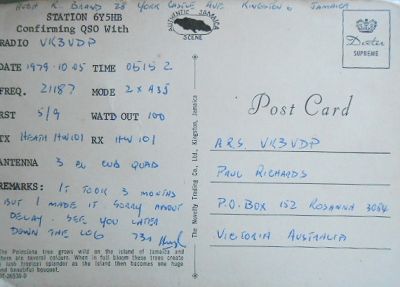 HUGH R. BRAND 28 YORK CASTLE AVE. KINGSTON 8 JAMAICA
STATION 6Y5HB
Confirming QSO With
RADIO VK3VDP
DATE 1979.10.05 TIME 0515 Z
FREQ. 21187 MODE 2 X A3J
RST 5/9 WATTD OUT 100
TX HEATH HW101 RX HW 101
ANTENNA 3 EL CUB QUAD
REMARKS: IT TOOK 3 MONTHS
BUT I MADE IT. SORRY ABOUT
DELAY. SEE YOU LATER
DOWN THE LOG
73s Hugh
The Poinciana tree grows wild on the island of Jamaica and
there are several colours. When in full bloom these trees create
a lush tropical splendor as the island then becomes one huge
and beautiful bouquet.
AUTHENTIC JAMAICA
SCENE
The Novelty Trading Co., Ltd., Kingston, Jamaica
Dexter
SUPREME
Post Card
A.R.S. VK3VDP
PAUL RICHARDS
P.O. BOX 152 ROSANNA 3084
VICTORIA AUSTRALIA